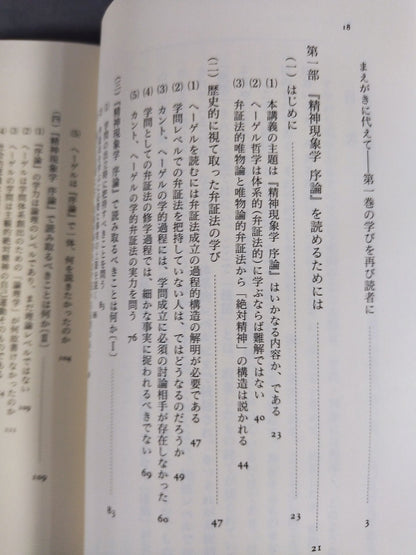 18
まえがきに代えて――第一巻の学びを再び読者に 3
第一部 『精神現象学 序論』を読めるためには 21
(一) はじめに 23
(1) 本講義の主題は『精神現象学 序論』はいかなる内容か、である 23
(2) ヘーゲル哲学は体系的(弁証法的)に学ぶならば難解ではない 40
(3) 弁証法的唯物論と唯物論的弁証法から「絶対精神」の構造は説かれる 44
(二) 歴史的に視て取った弁証法の学び 47
(1) ヘーゲルを読むには弁証法成立の過程的構造の解明が必要である 47
(2) 学問レベルでの弁証法を把持していない人は、ではどうなるのだろうか 49
(3) カント、ヘーゲルの学的過程には、学問成立に必須の討論相手が存在しなかった 60
(4) 学問としての弁証法の修学過程では、細かな事実に捉われるべきでない 69
(5) カント、ヘーゲルの学的弁証法の実力を問う 76
(三) 『精神現象学 序論』で読み取るべきことは何か(Ⅰ) 83
85
(5) ヘーゲルは『序論』で一体、何を説きたかったのか 104
(四) 『精神現象学 序論』で読み取るべきことは何か(Ⅱ) 109
(1) 『序論』の学力は論理のレベルであり、まだ理論レベルではない 109
(2) ヘーゲルは学問体系創出のための「論理学」が何故書けなかったのか